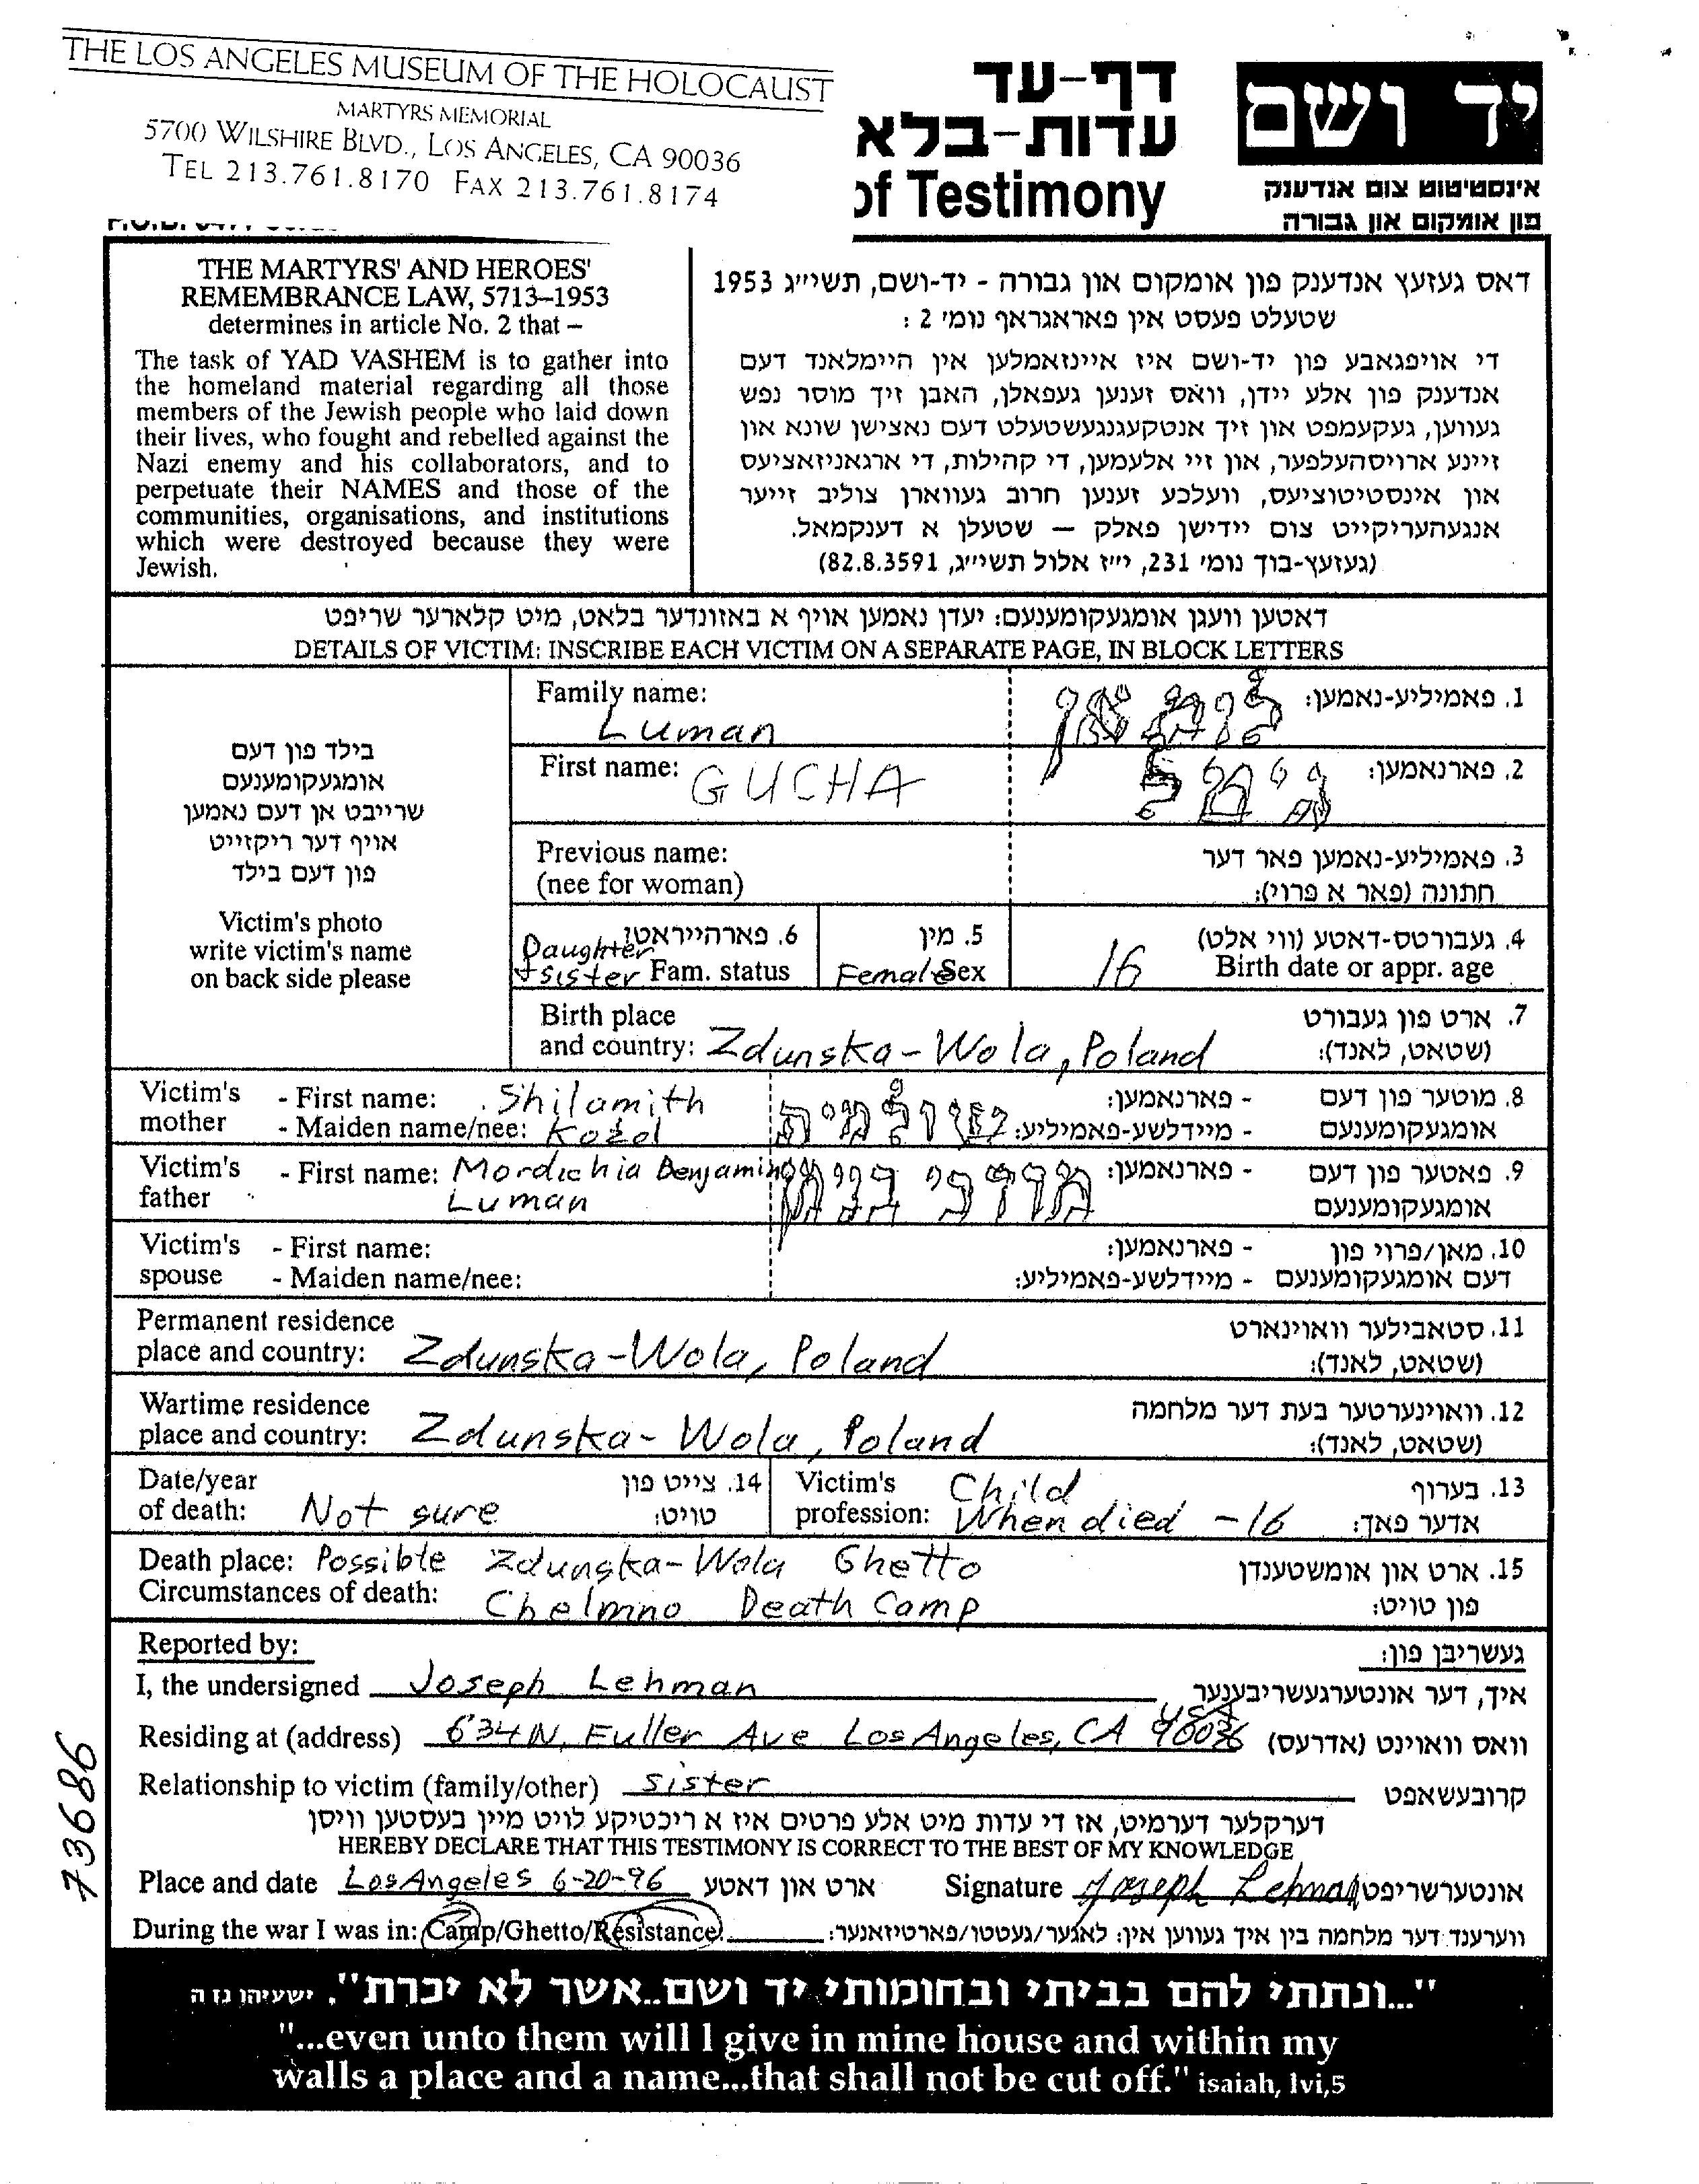 THE LOS ANGELES MUSEUM OF THE HOLOCAUST
MARTYRS MEMORIAL
5700 WILSHIRE BLVD., LOS ANGELES, CA 90036
TEL 213.761.8170 FAX 213.761.8174
דף-עד
עדות-בלא
of Testimony
יד ושם
אינסטיטוט צום אנדענק
פון אומקום און גבורה
THE MARTYRS' AND HEROES'
REMEMBRANCE LAW, 5713–1953
determines in article No. 2 that –
The task of YAD VASHEM is to gather into
the homeland material regarding all those
members of the Jewish people who laid down
their lives, who fought and rebelled against the
Nazi enemy and his collaborators, and to
perpetuate their NAMES and those of the
communities, organisations, and institutions
which were destroyed because they were
Jewish.
דאס געזעץ אנדענק פון אומקום און גבורה - יד-ושם, תשי״ג 1953
שטעלט פעסט אין פאראגראף נומ׳ 2 :
די אויפגאבע פון יד-ושם איז איינזאמלען אין היימלאנד דעם
אנדענק פון אלע יידן, וואס זענען געפאלן, האבן זיך מוסר נפש
געווען, געקעמפט און זיך אנטקעגנגעשטעלט דעם נאצישן שונא און
זיינע ארויסהעלפער, און זיי אלעמען, די קהילות, די ארגאניזאציעס
און אינסטיטוציעס, וועלכע זענען חרוב געווארן צוליב זייער
אנגעהעריקייט צום יידישן פאלק — שטעלן א דענקמאל.
(געזעץ-בוך נומ׳ 231, י״ז אלול תשי״ג, 82.8.3591)
דאטען וועגן אומגעקומענעם: יעדן נאמען אויף א באזונדער בלאט, מיט קלארער שריפט
DETAILS OF VICTIM: INSCRIBE EACH VICTIM ON A SEPARATE PAGE, IN BLOCK LETTERS
בילד פון דעם
אומגעקומענעם
שרייבט אן דעם נאמען
אויף דער ריקזייט
פון דעם בילד
Victim's photo
write victim's name
on back side please
Family name: 1. פאמיליע-נאמען:
Luman לומאן
First name: GUCHA 2. פארנאמען:
Previous name: 3. פאמיליע-נאמען פאר דער
(nee for woman) חתונה (פאר א פרוי):
6. פארהייראטן 5. מין 4. געבורטס-דאטע (ווי אלט)
Daughter
+ Sister Fam. status Female Sex 16 Birth date or appr. age
Birth place 7. ארט פון געבורט
and country: Zdunska-Wola, Poland (שטאט, לאנד):
Victim's - First name: Shilamith שולמית - פארנאמען: 8. מוטער פון דעם
mother - Maiden name/nee: Kozol - מיידלשע-פאמיליע: אומגעקומענעם
Victim's - First name: Mordichia Benjamin מרדכי בנימן - פארנאמען: 9. פאטער פון דעם
father Luman אומגעקומענעם
Victim's - First name: - פארנאמען: 10. מאן/פרוי פון
spouse - Maiden name/nee: - מיידלשע-פאמיליע: דעם אומגעקומענעם
Permanent residence 11. סטאבילער וואוינארט
place and country: Zdunska-Wola, Poland (שטאט, לאנד):
Wartime residence 12. וואוינערטער בעת דער מלחמה
place and country: Zdunska-Wola, Poland (שטאט, לאנד):
Date/year 14. צייט פון Victim's Child 13. בערוף
of death: Not sure טויט: profession: When died - 16 אדער פאך:
Death place: Possible Zdunska-Wola Ghetto 15. ארט און אומשטענדן
Circumstances of death: Chelmno Death Camp פון טויט:
Reported by: געשריבן פון:
I, the undersigned Joseph Lehman איך, דער אונטערגעשריבענער
USA
Residing at (address) 634 N. Fuller Ave Los Angeles, CA 90036 וואס וואוינט (אדרעס)
Relationship to victim (family/other) sister קרובעשאפט
דערקלער דערמיט, אז די עדות מיט אלע פרטים איז א ריכטיקע לויט מיין בעסטען וויסן
HEREBY DECLARE THAT THIS TESTIMONY IS CORRECT TO THE BEST OF MY KNOWLEDGE
Place and date Los Angeles 6-20-96 ארט און דאטע Signature Joseph Lehman אונטערשריפט
During the war I was in: Camp/Ghetto/Resistance: ווערענד דער מלחמה בין איך געווען אין: לאגער/געטטו/פארטיזאנער:
73686
"...ונתתי להם בביתי ובחומותי יד ושם..אשר לא יכרת". ישעיהו נז ה
"...even unto them will I give in mine house and within my
walls a place and a name...that shall not be cut off." isaiah, lvi,5